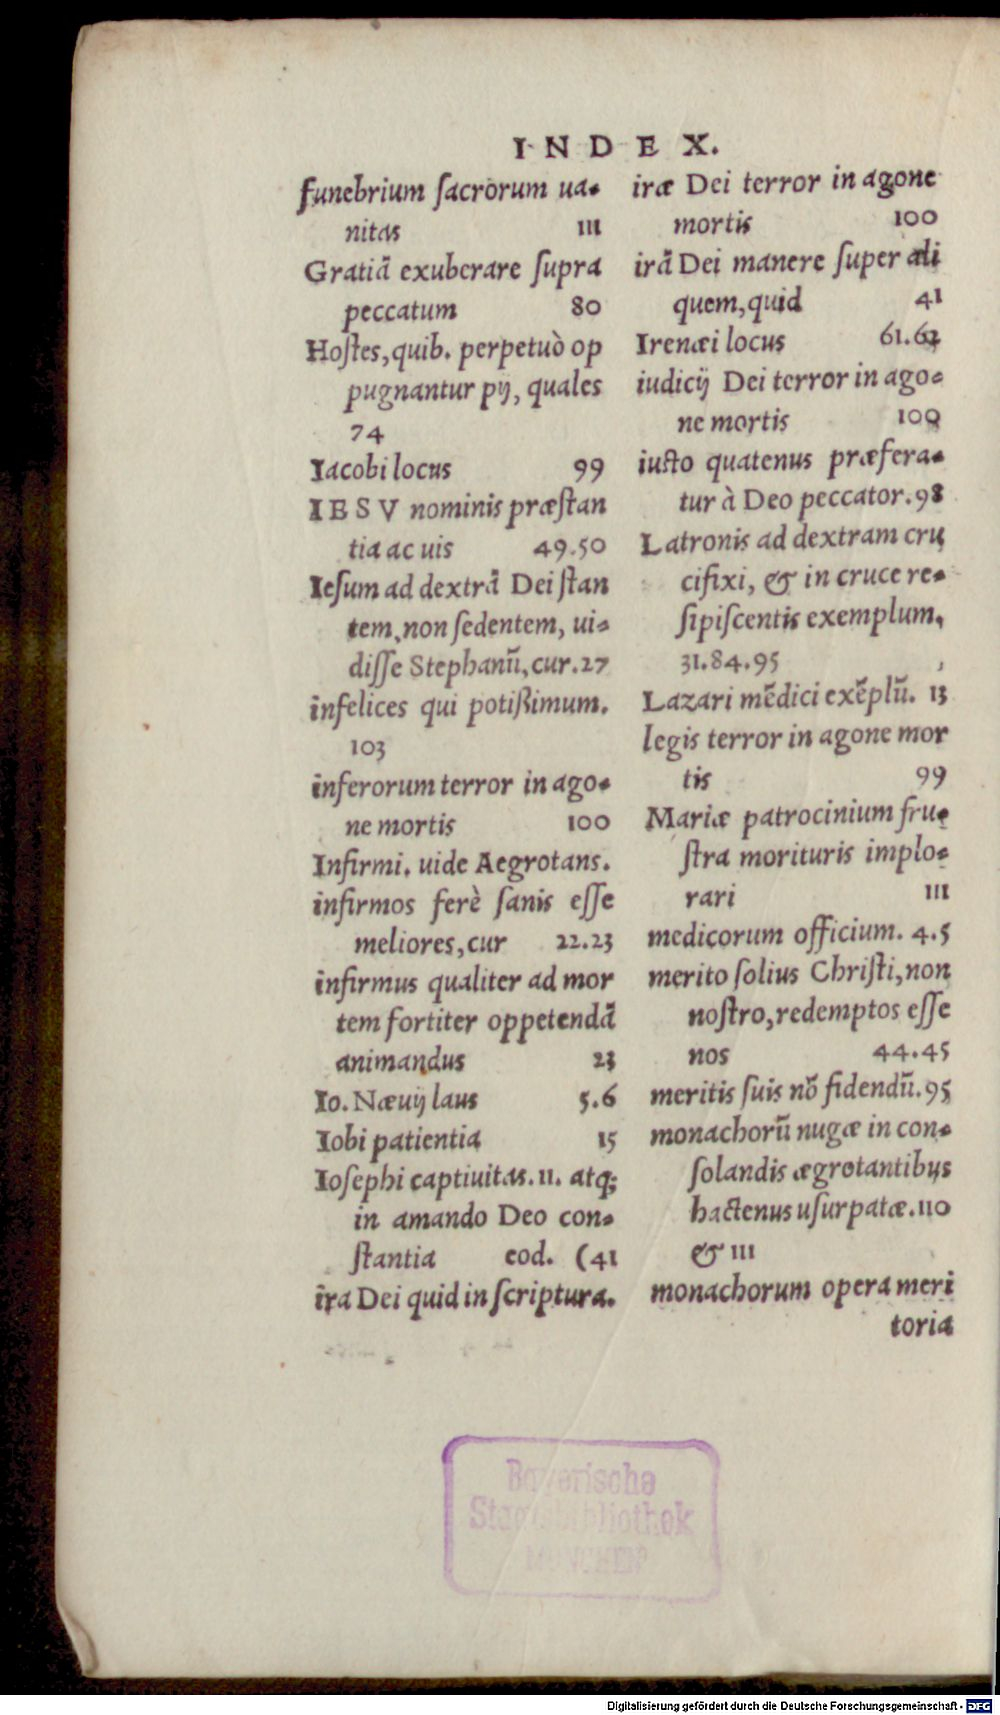 INDEX.
funebrium ſacrorum ua-
nitas 111
Gratiã exuberare ſupra
peccatum 80
Hoſtes, quib. perpetuò op
pugnantur pij, quales
74
Iacobi locus 99
IESV nominis præſtan
tia ac uis 49.50
Ieſum ad dextrã Dei ſtan
tem, non ſedentem, ui-
diſſe Stephanũ, cur. 27
infelices qui potißimum.
103
inferorum terror in ago-
ne mortis 100
Infirmi. uide Aegrotans.
infirmos ferè ſanis eſſe
meliores, cur 22.23
infirmus qualiter ad mor
tem fortiter oppetendã
animandus 23
Io. Næuij laus 5.6
Iobi patientia 15
Ioſephi captiuitas. 11. atq;
in amando Deo con-
ſtantia eod. (41
ira Dei quid in ſcriptura.
iræ Dei terror in agone
mortis 100
irã Dei manere ſuper ali
quem, quid 41
Irenæi locus 61.62
iudicij Dei terror in ago-
ne mortis 100
iuſto quatenus præfera-
tur à Deo peccator. 98
Latronis ad dextram cru
cifixi, & in cruce re-
ſipiſcentis exemplum,
31.84.95
Lazari mẽdici exẽplũ. 13
legis terror in agone mor
tis 99
Mariæ patrocinium fru-
ſtra morituris implo-
rari 111
medicorum officium. 4.5
merito ſolius Chriſti, non
noſtro, redemptos eſſe
nos 44.45
meritis ſuis nõ fidendũ. 95
monachorũ nugæ in con-
ſolandis ægrotantibus
hactenus uſurpatæ. 110
& 111
monachorum opera meri
toria
Bayerische
Staatsbibliothek
MÜNCHEN
Digitalisierung gefördert durch die Deutsche Forschungsgemeinschaft - DFG